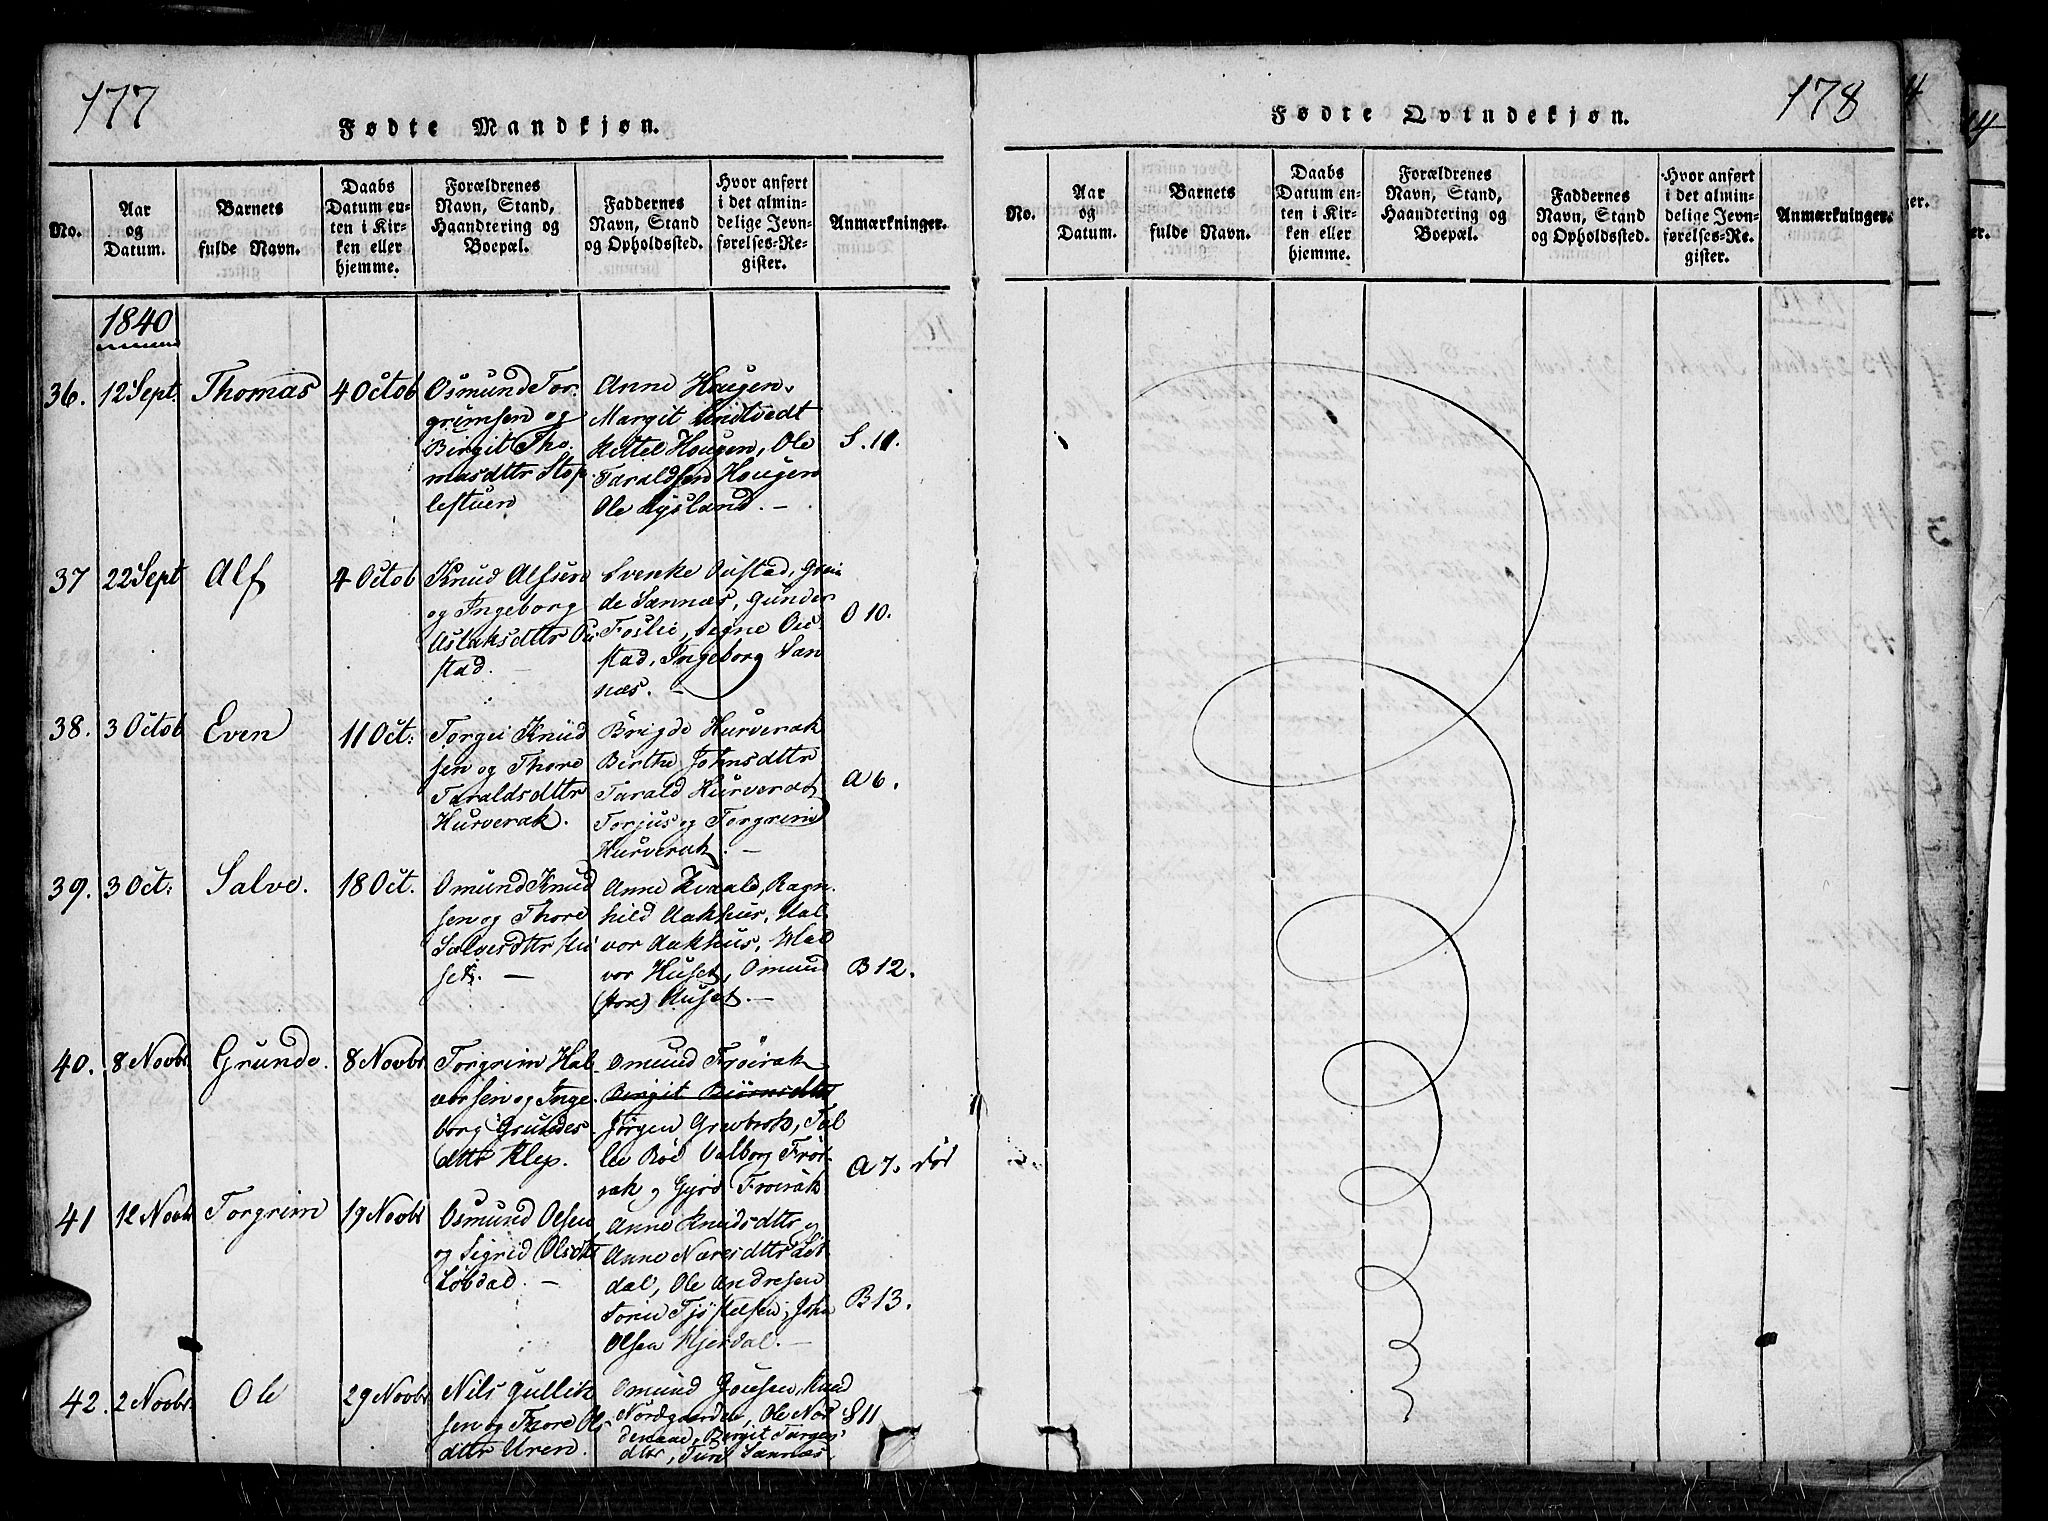 177
Fødte Mandkjøn.
No.
Aar
og
Datum.
Barnets
fulde Navn.
Daabs
Datum en-
ten i Kir-
ken eller
hjemme.
Forældrenes
Navn, Stand,
Haandtering og
Boepæl.
Faddernes
Navn, Stand
og Opholdssted.
Hvor anført
i det almin-
delige Jevn-
førelses-Re-
gister.
Anmærkninger.
1840
36.
12 Sept.
Thomas
4 Octob
Osmund Tor-
grimsen og
Birgit Tho-
masdttr Stop-
lestuen
Anne Hougen,
Margit Lindtvedt
Kittel Hougen, Ole
Taraldsen Hougen
Ole Lysland. -
S. 11.
37
22 Sept
Alf
4 Octob
Knud Alfsen
og Ingeborg
Aslaksdttr Ou-
stad. -
Svenke Oustad,
de Sannæs, Gunder
Foslie, Signe Ou-
stad, Ingeborg San
næs. -
O 10.
38.
3 Octob
Even
11 Oct:
Torgei Knud
sen og Thore
Taraldsdttr
Hurverak.
Brigde Hurverak
Birthe Johnsdttr
Tarald Hurverak
Torjus og Torgrim
Hurverak. -
A 6.
39.
3 Oct:
Salve.
18 Oct.
Omund Knud
sen og Thore
Salvesdttr Hu
set. -
Anne Kvaald, Ragn-
hild Aakhus, Hal-
vor Aakhus, Hal
vor Huset, Omund
Huset. -
B 12.
40.
8 Novbr
Grunde.
8 Novbr
Torgrim Hal-
vorsen og Inge-
borg Grundes
dttr Klep.
Omund Frøirak
Birgit Biørnsdttr
Jørgen Grovbrok, Tal
lei Røe Valborg Frøi-
rak og Gyro Frøirak
A 7. død
41
12 Novbr
Torgrim
19 Novbr
Osmund Olsen
og Sigrid Olsdttr
Løbdal. -
Anne Knudsdttr og
Anne Næresdttr
dal, Ole Andresen
Tjøstelsen, John
Olsen Hjerdal. -
B 13.
42.
2 Novbr.
Ole
29 Novbr
Nils Gullik
sen og Thore Ols
dttr Uren.
Omund Jonsen, Knud
Nordgaarden, Ole Nor
denaae, Birgit Torgers
dttr, Turi Sannæs.
S11
178
Fødte Qvindekjøn.
No.
Aar
og
Datum.
Barnets
fulde Navn.
Daabs
Datum en-
ten i Kir-
ken eller
hjemme.
Forældrenes
Navn, Stand,
Haandtering og
Boepæl.
Faddernes
Navn, Stand
og Opholdssted.
Hvor anført
i det almin-
delige Jevn-
førelses-Re-
gister.
Anmærkninger.